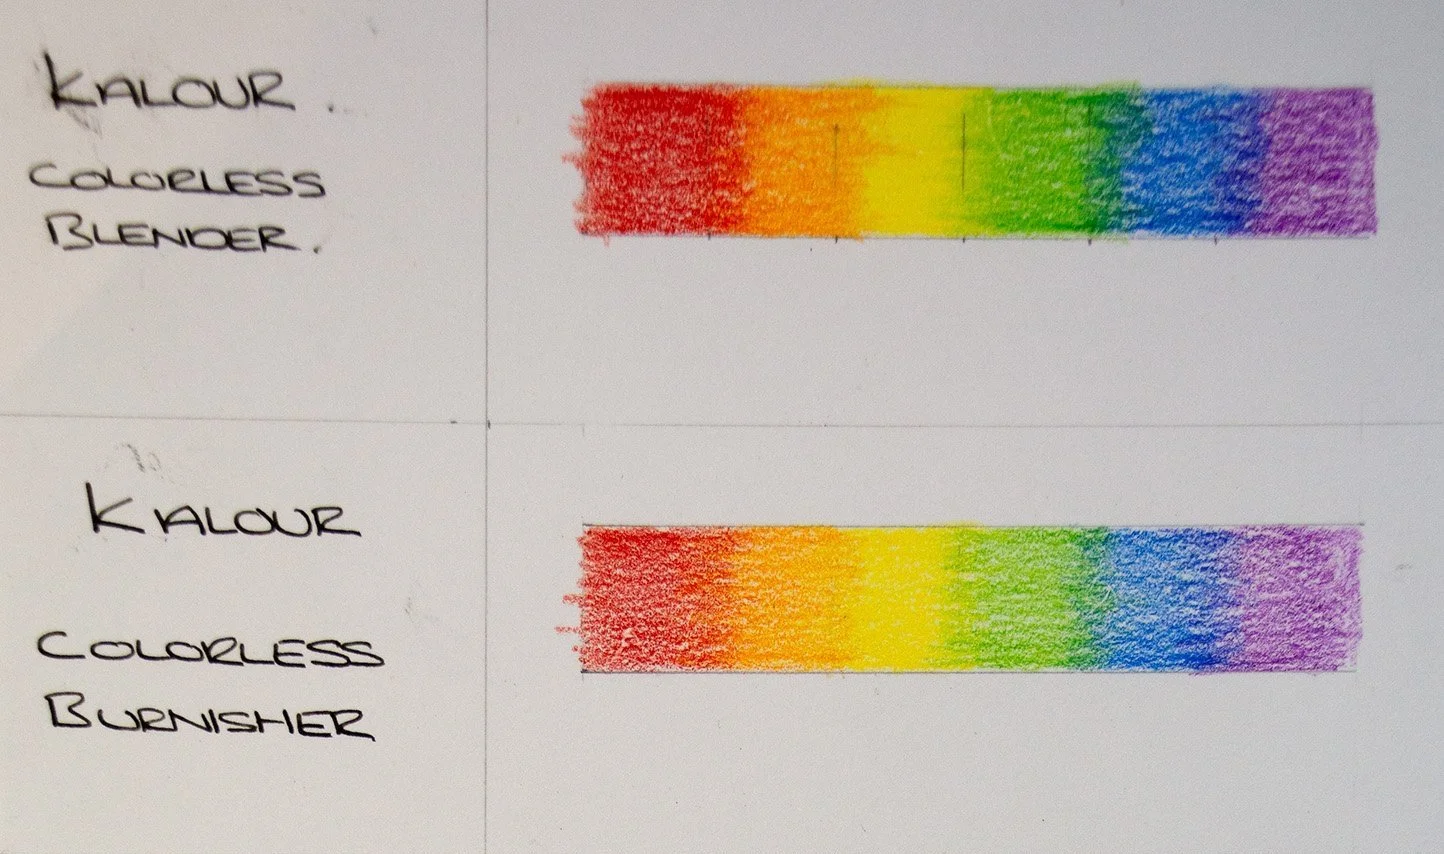 KALOUR.
COLORLESS
BLENDER.
KALOUR
COLORLESS
BURNISHER